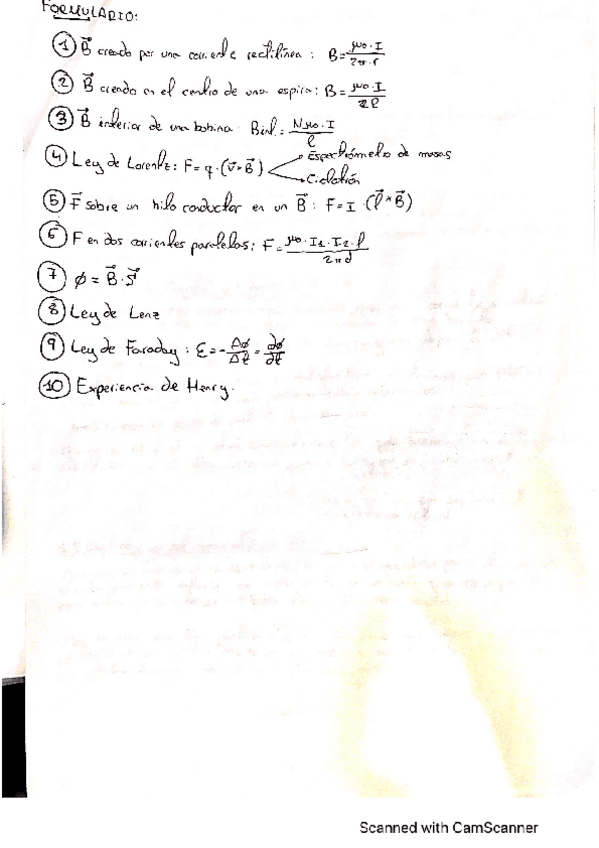 FORMULARIO:
① B⃗ creado por una corriente rectilínea : B = μo · I / 2π · r
② B⃗ creado en el centro de una espira : B = μo · I / 2R
③ B⃗ interior de una bobina : Bint. = N μo · I / l
④ Ley de Lorentz : F = q · (v⃗ × B⃗)
Espectrómetro de masas
Ciclotrón
⑤ F⃗ sobre un hilo conductor en un B⃗ : F = I · (l⃗ × B⃗)
⑥ F en dos corrientes paralelas ; F = μo · I1 · I2 · l / 2πd
⑦ ϕ = B⃗ · S⃗
⑧ Ley de Lenz
⑨ Ley de Faraday : ε = - Δϕ / Δt = dϕ / dt
⑩ Experiencia de Henry.
Scanned with CamScanner